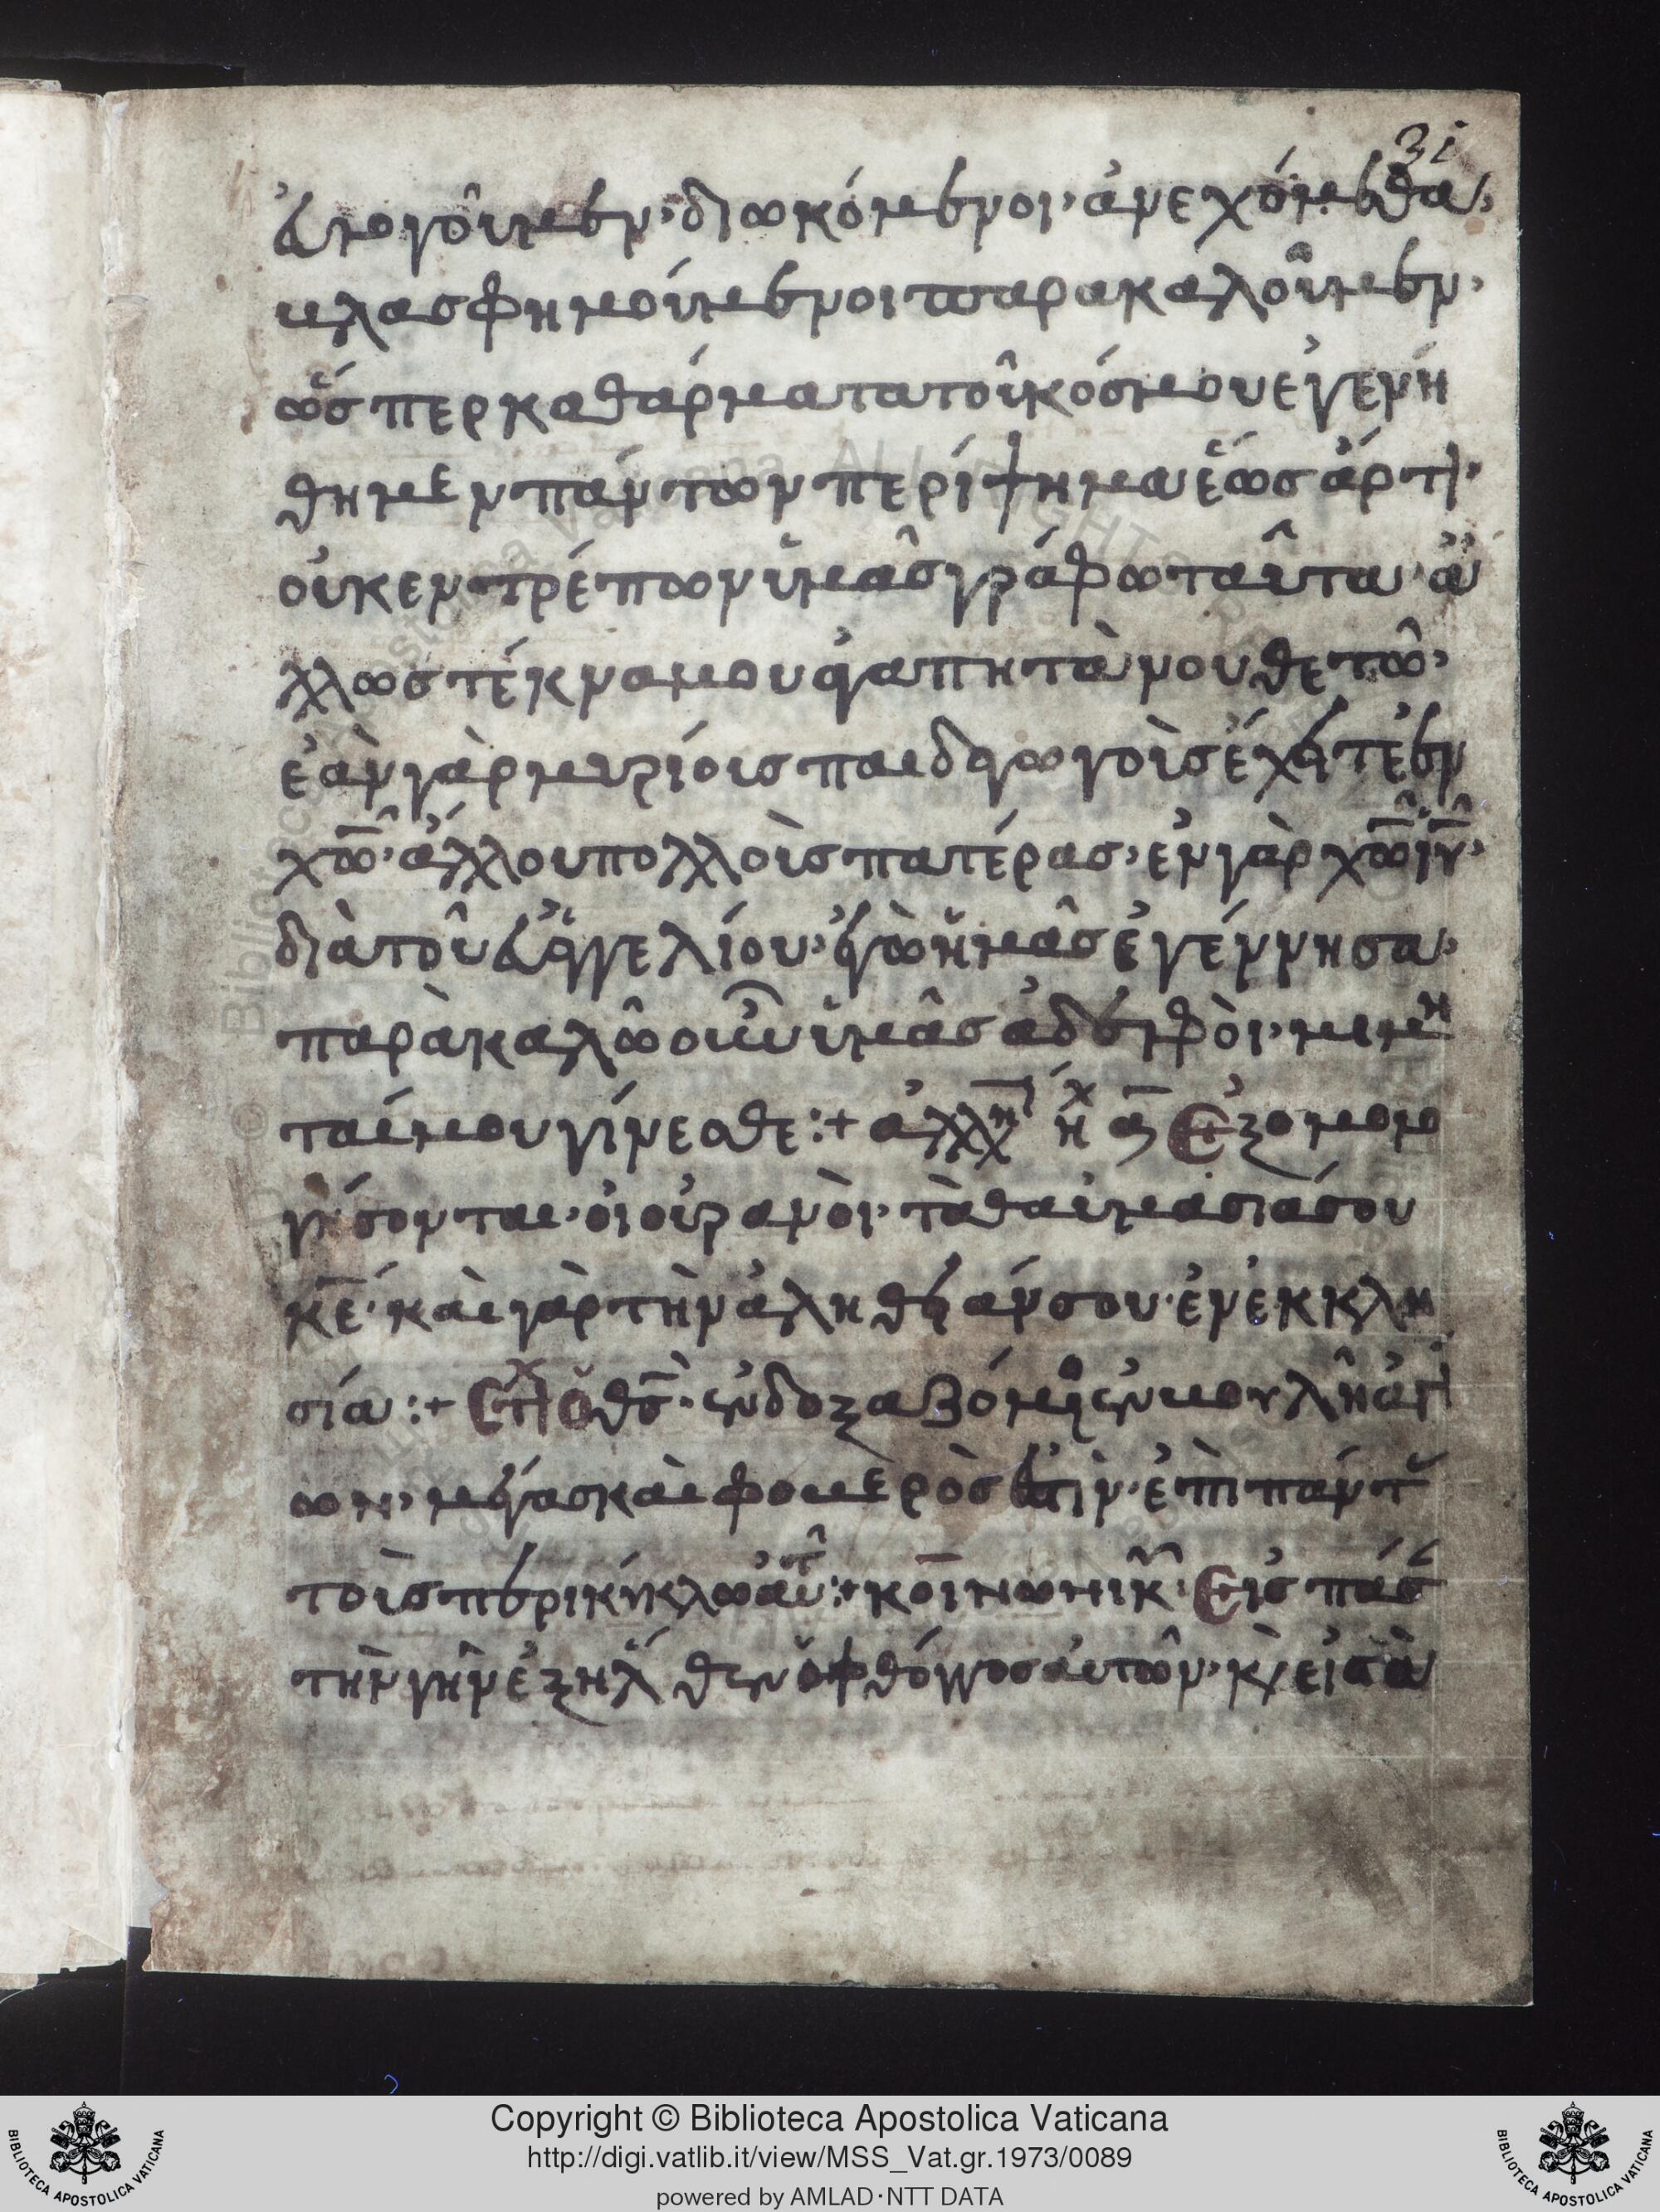 31
ἐυλογοῦμεν· διωκόμενοι· ἀνεχόμεθα·
βλασφημούμενοι παρακαλοῦμεν·
ὥσπερ καθάρματα τοῦ κόσμου ἐγενή
θημεν πάντων περίψημα ἕως ἄρτι·
οὐκ εντρέπων ὑμᾶς γράφω ταῦτα· ἀ
λλωσ τέκνα μου ἀγαπητὰ νουθετῶ·
ἐὰν γὰρ μυρίοις παιδαγωγοὶς ἔχητε ἐν
χω̅· ἀλλου πολλοὶς πατέρας· ἐν γὰρ χω̅ ιυ̅·
διὰ τοῦ ἐυαγγελίου· ἐγὼ ἡμᾶς ἐγέννησα·
παρὰκαλῶ οὖν ὑμᾶς ἀδελφὸι· μιμη
ταί μου γίνεσθε :+ ἀλλη ἠχ α Ἐξομομο
γήσονται· ὁι οὐρανὸι· τὰ θαυμασιά σου
κε̅· καὶ γὰρ τὴν ἀλήθειαν σου· ἐν ἐκκλη
σία :+ Στιχ Ὁ θς̅· ἐνδοξαζόμε ἐν βουλῆ ἁγί
ων· μέγας καὶ φοβερὸς ἐστὶν· ἐπὶ πάντ
τοὶς περικύκλω αὐτ :+ κοινωνικ· Εἰς πάσ
τὴν γῆν ἐξῆλθεν ὁ φθόγγος αὐτῶν· κὶ εἰς τὰ
Copyright © Biblioteca Apostolica Vaticana
http://digi.vatlib.it/view/MSS_Vat.gr.1973/0089
powered by AMLAD·NTT DATA
BIBLIOTECA APOSTOLICA VATICANA
BIBLIOTECA APOSTOLICA VATICANA